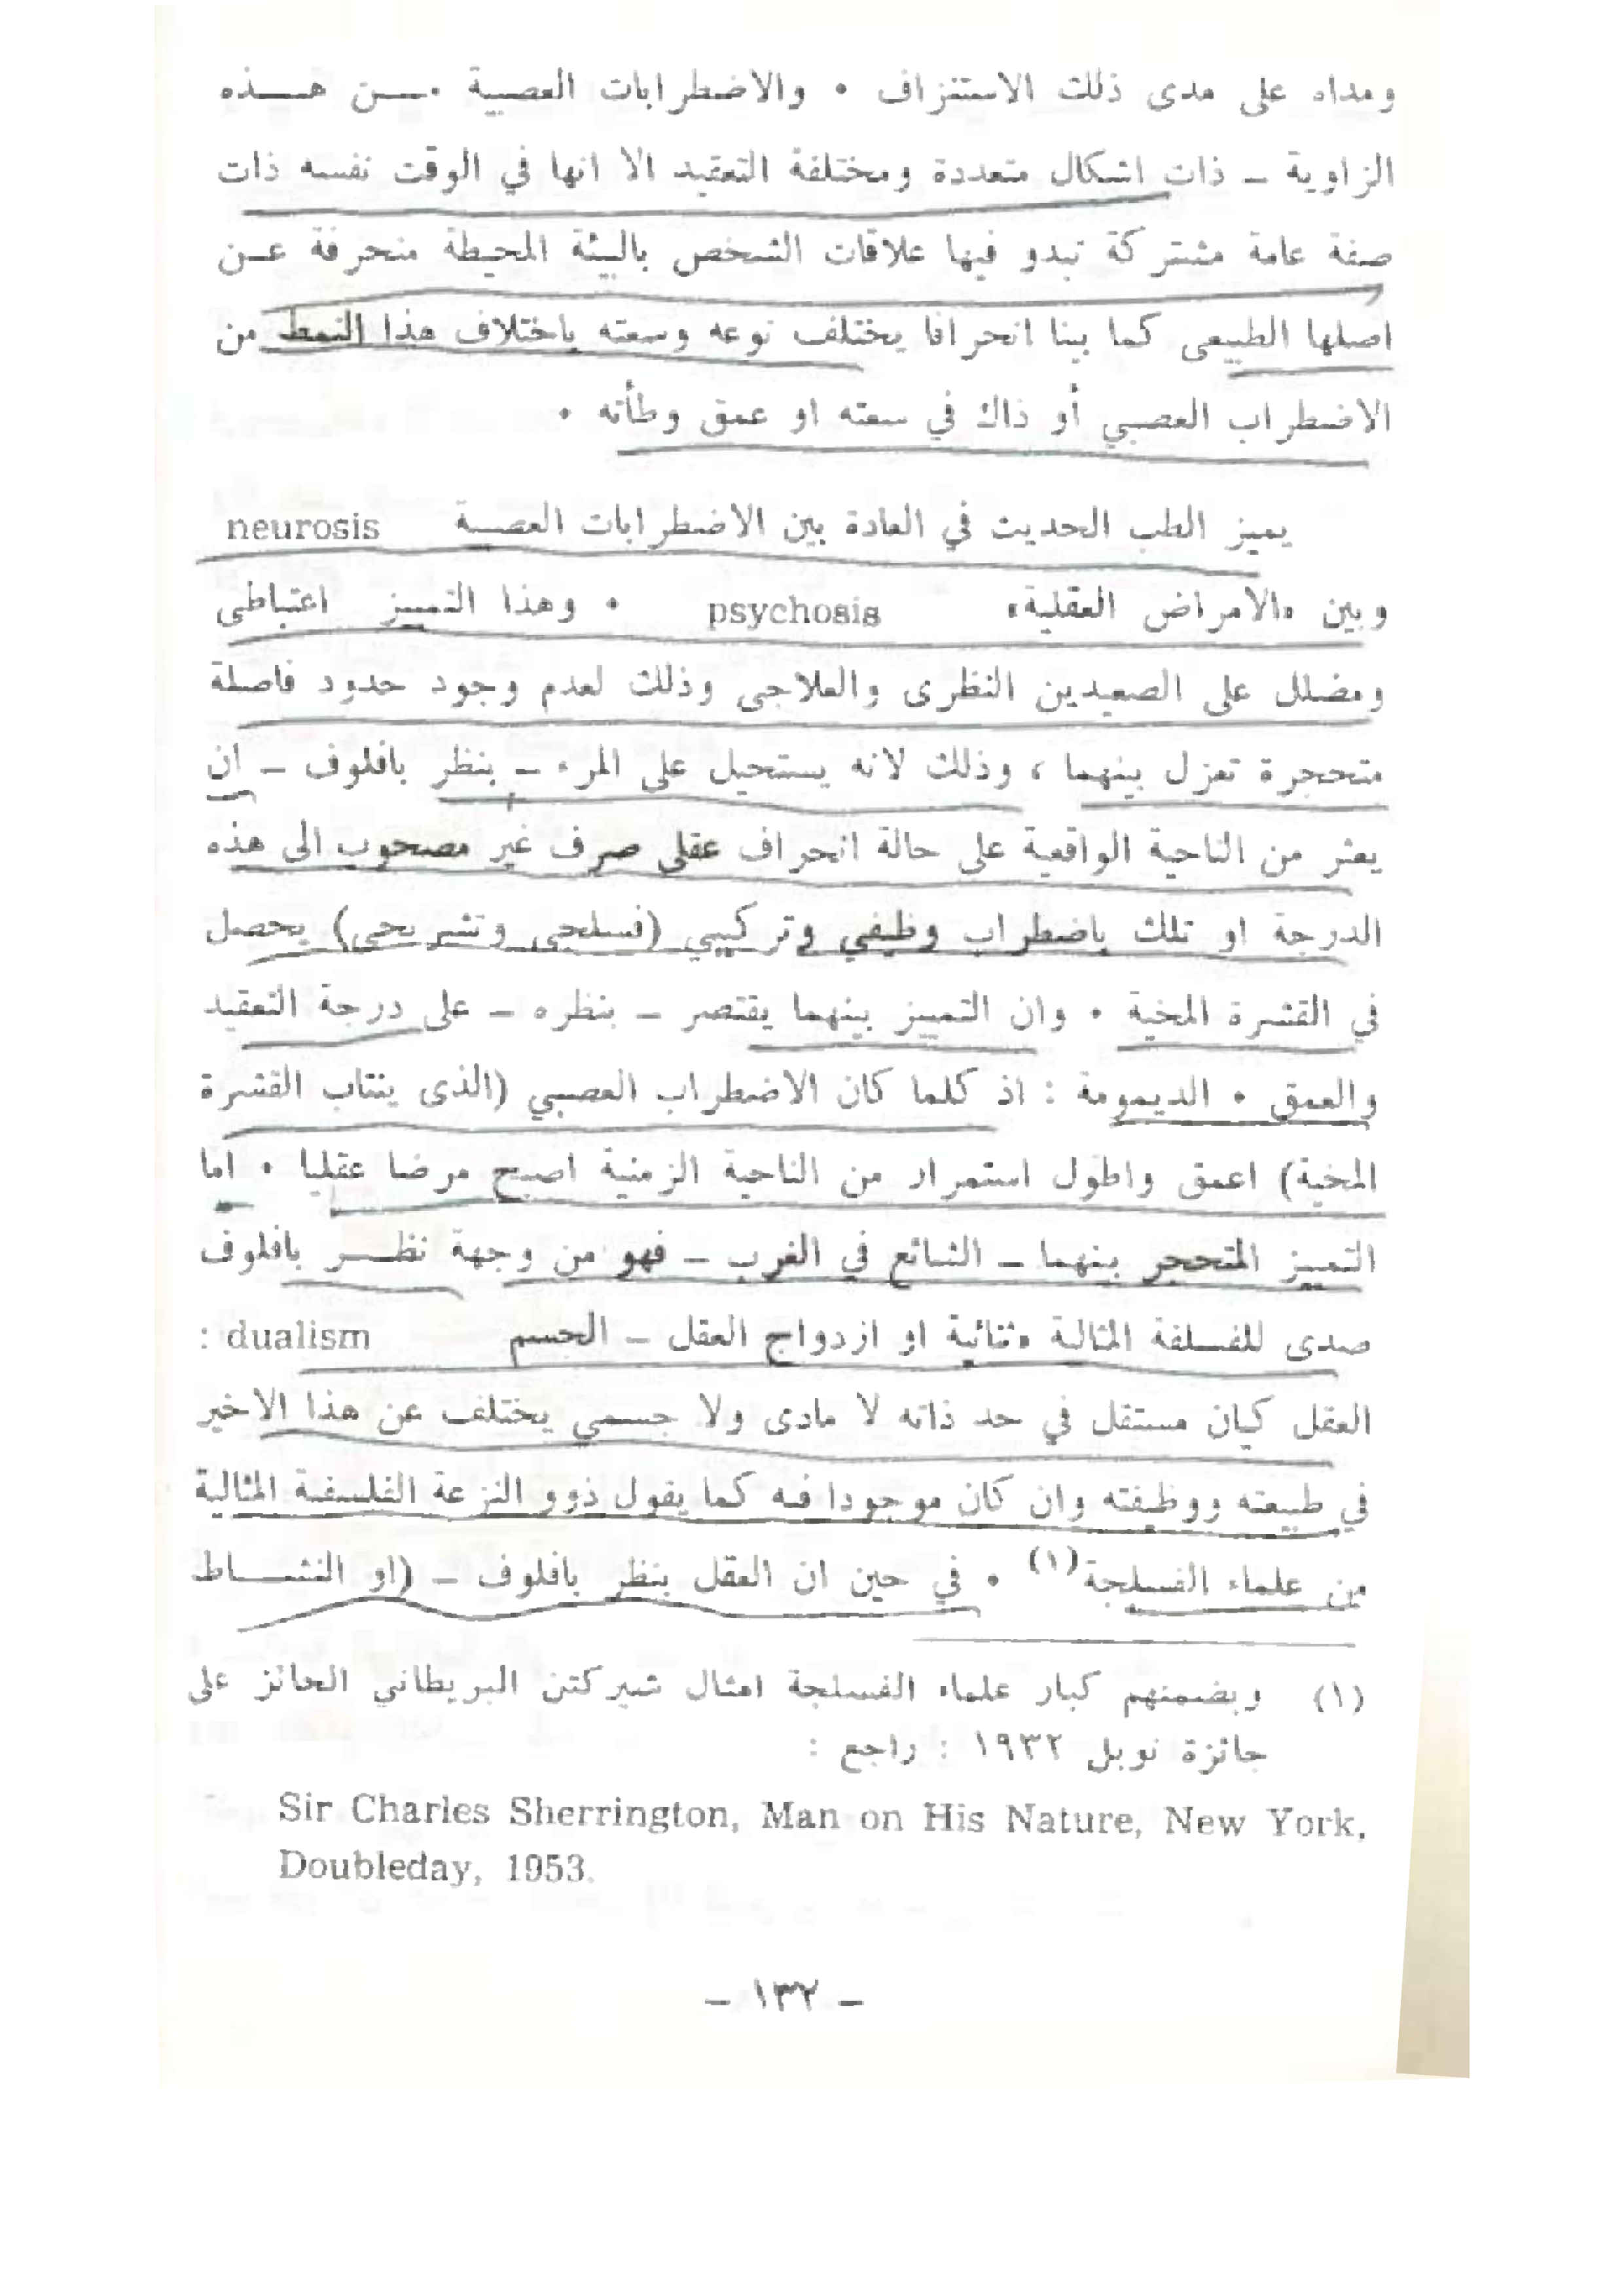 ومداه على مدى ذلك الاستنزاف . والاضطرابات العصبية من هذه
الزاوية – ذات اشكال متعددة ومختلفة التعقيد الا انها في الوقت نفسه ذات
صفة عامة مشتركة تبدو فيها علاقات الشخص بالبيئة المحيطة منحرفة عن
اصلها الطبيعى كما بينا انحرافا يختلف نوعه وسعته باختلاف هذا النمط من
الاضطراب العصبي أو ذاك في سعته او عمق وطأته .
يميز الطب الحديث في العادة بين الاضطرابات العصبية neurosis
وبين «الامراض العقلية» psychosis . وهذا التمييز اعتباطى
ومضلل على الصعيدين النظرى والعلاجى وذلك لعدم وجود حدود فاصلة
متحجرة تعزل بينهما ، وذلك لانه يستحيل على المرء – بنظر بافلوف – ان
يعثر من الناحية الواقعية على حالة انحراف عقلى صرف غير مصحوب الى هذه
الدرجة او تلك باضطراب وظيفي وتركيبي (فسلجى وتشريحى) يحصل
في القشرة المخية . وان التمييز بينهما يقتصر – بنظره – على درجة التعقيد
والعمق . الديمومة : اذ كلما كان الاضطراب العصبي (الذى ينتاب القشرة
المخية) اعمق واطول استمرار من الناحية الزمنية اصبح مرضا عقليا . اما
التمييز المتحجر بينهما – الشائع في الغرب – فهو من وجهة نظر بافلوف
صدى للفسلفة المثالية «ثنائية او ازدواج العقل – الجسم dualism :
العقل كيان مستقل في حد ذاته لا مادى ولا جسمي يختلف عن هذا الاخير
في طبيعته ووظيفته وان كان موجودا فيه كما يقول ذوو النزعة الفلسفية المثالية
من علماء الفسلجة(١) . في حين ان العقل بنظر بافلوف – (او النشاط
(١) وبضمنهم كبار علماء الفسلجة امثال شيركتن البريطاني الحائز على
جائزة نوبل ١٩٣٢ : راجع :
Sir Charles Sherrington, Man on His Nature, New York,
Doubleday, 1953.
– ١٣٢ –